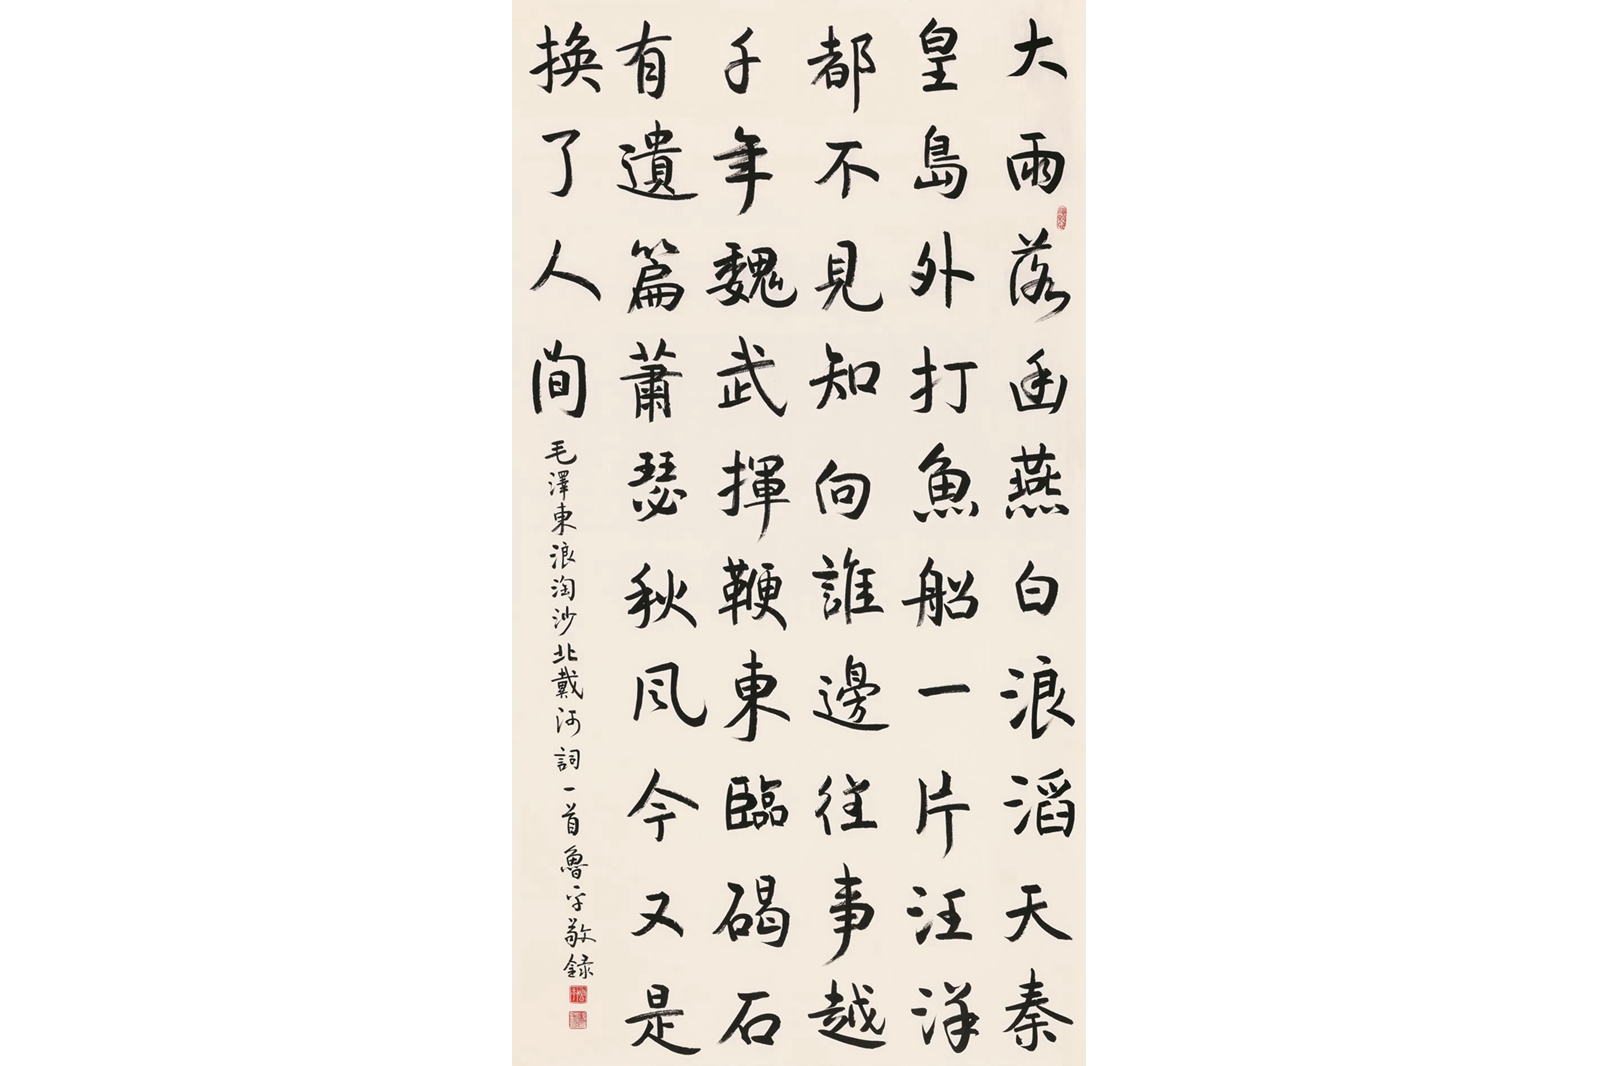 大雨落幽燕白浪滔天秦
皇島外打魚船一片汪洋
都不見知向誰邊往事越
千年魏武揮鞭東臨碣石
有遺篇蕭瑟秋风今又是
换了人間
毛澤東浪淘沙北戴河詞一首魯平敬録